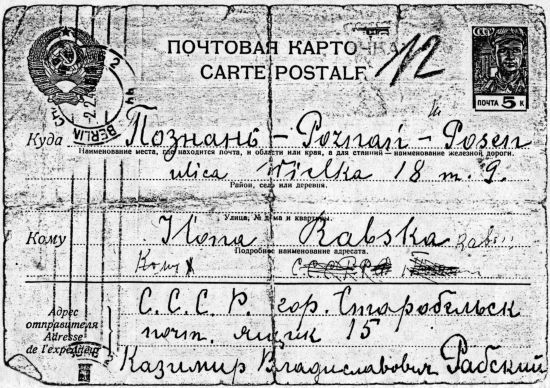 ПОЧТОВАЯ КАРТОЧКА
CARTE POSTALE
12
СССР
ПОЧТА 5 К
BERLIN
Куда Познань – Poznań – Posen
Наименование места, где находится почта, и области или края, а для станций – наименование железной дороги.
ulica Wielka 18 m. 9.
Район, село или деревня.
Улица, № дома и квартиры.
Кому Ilona Rabska
Подробное наименование адресата.
Адрес отправителя
Adresse de l'expéditeur
С.С.С.Р. гор. Старобельск
почт. ящик 15
Казимир Владиславович Рабский